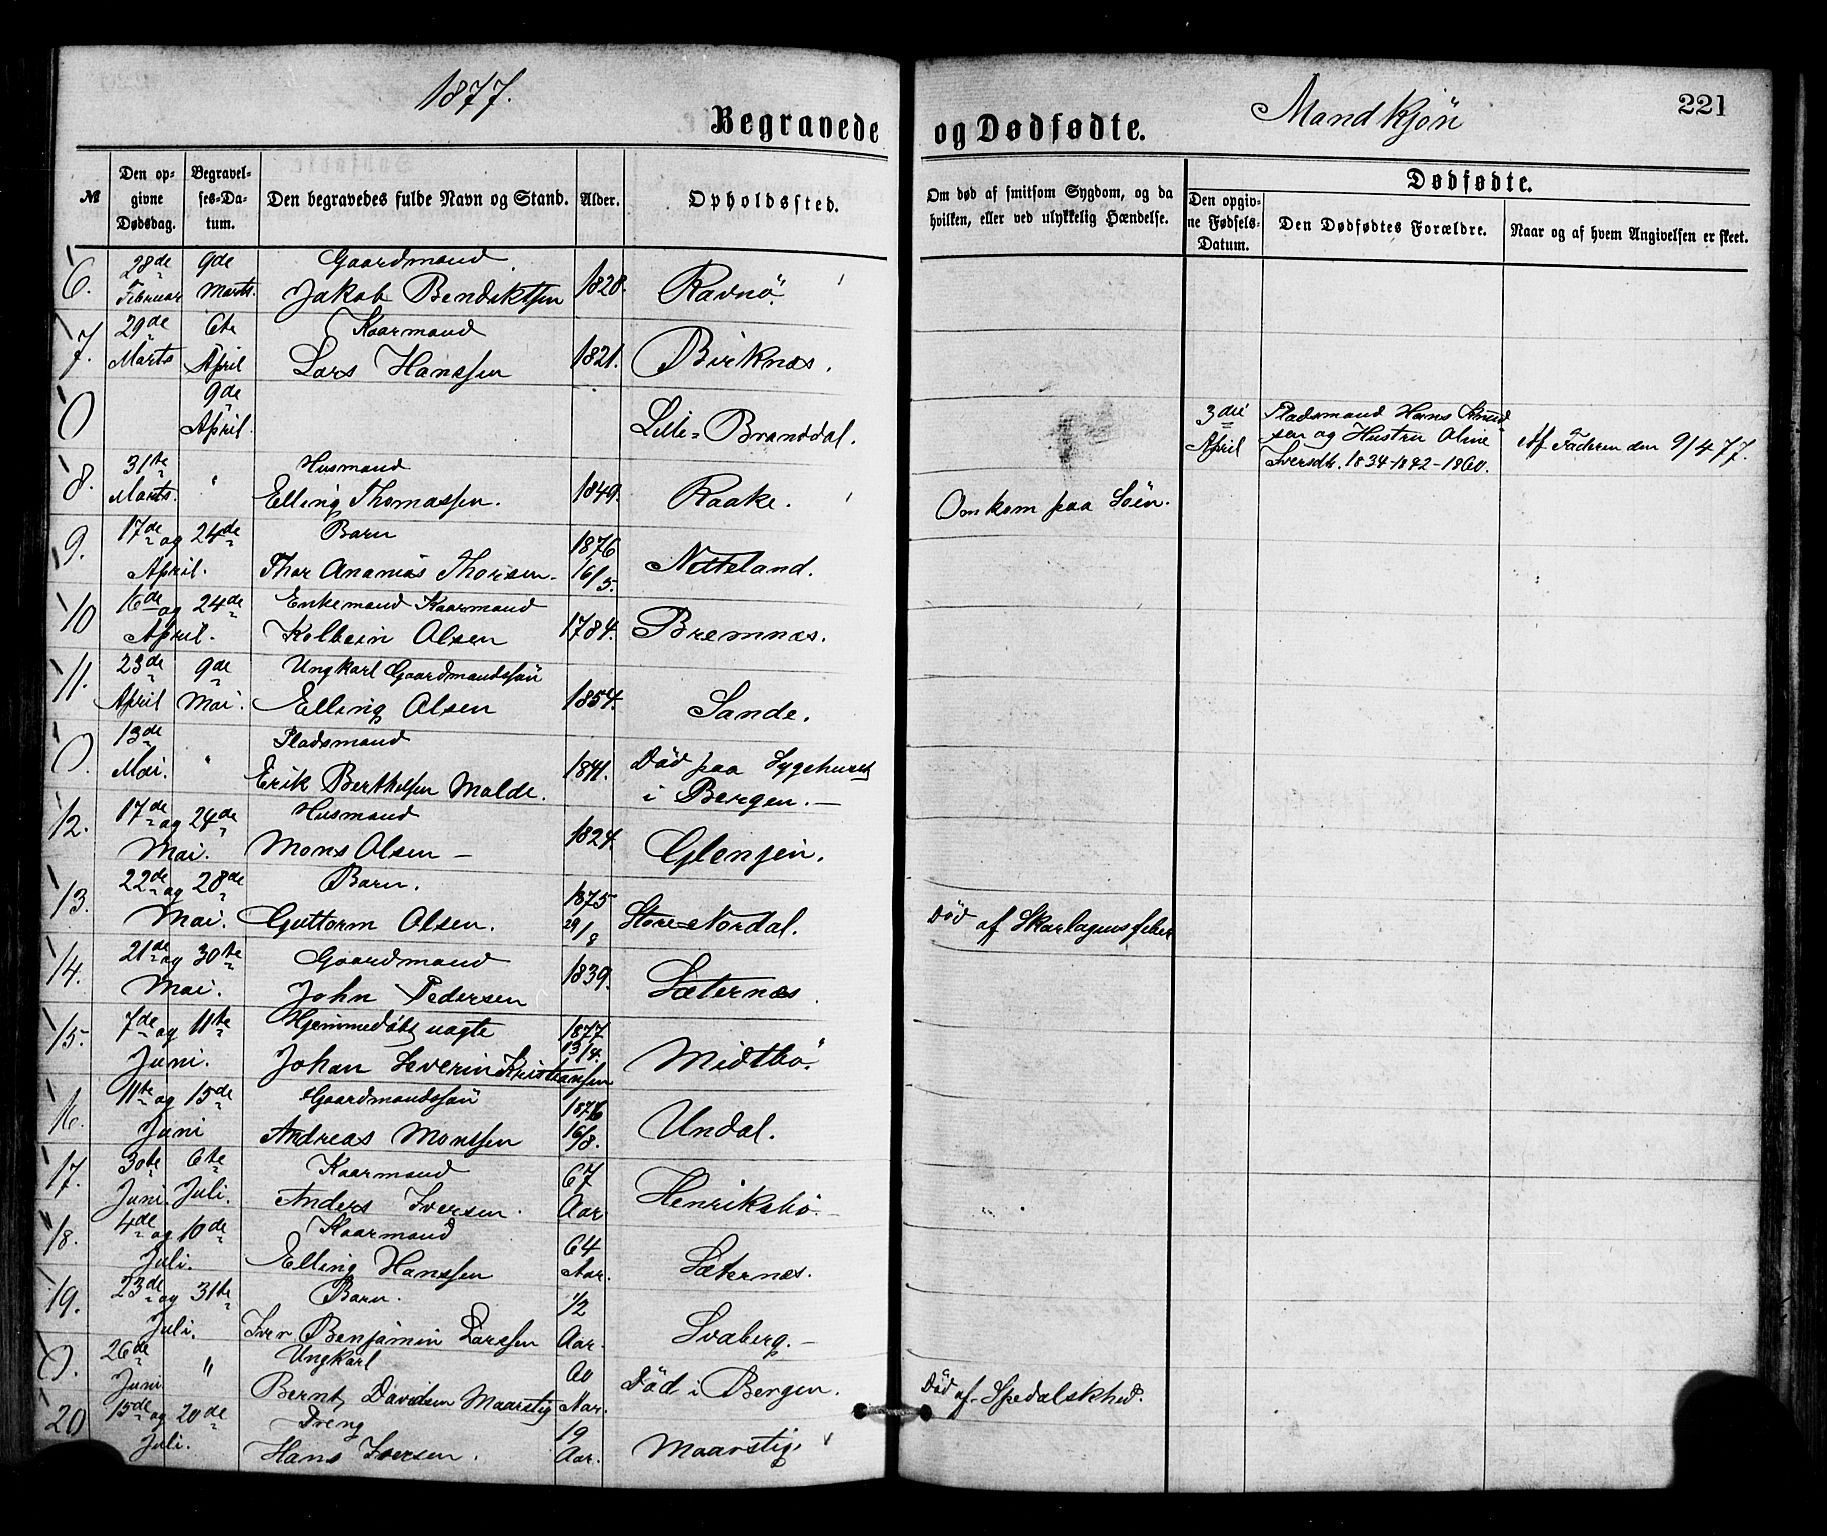 1877.
Begravede
og Dødfødte.
Mandkjøn
221
№
Den opgivne Dødsdag.
Begravelses-Datum.
Den begravedes fulde Navn og Stand.
Alder.
Opholdssted.
Om død af smitsom Sygdom, og da hvilken, eller ved ulykkelig Hændelse.
Dødfødte.
Den opgivne Fødsels-Datum.
Den Dødfødtes Forældre.
Naar og af hvem Angivelsen er skeet.
6. 28de Februar 9de Marts. Gaardmand Jakob Bendiktsen 1828. Ravnö.
7. 29de Marts 6te April Kaarmand Lars Hanssen 1821. Birknæs.
0 9de April. Lille=Branddal. 3die April Pladsmand Hans Knud
sen og Hustru Oline
Iversdtr. 1834-1842-1860. Af Faderen den 9/4 77.
8. 31te Marts. " Husmand Elling Thomassen. 1849. Raake. Omkom paa Söen.
9. 17de og 24de April. Barn Thor Ananias Thorsen. 1876 16/5. Netteland.
10 16de og 24de April. Enkemand Kaarmand Kolbein Olsen 1784. Bremnæs.
11. 23de April 9de Mai. Ungkarl Gaardmandssön Elling Olsen 1854. Sande.
0. 13de Mai. " Pladsmand Erik Berthelsen Molde. 1841. Död paa Sygehuset
i Bergen.—
12. 17de og 24de Mai. Husmand Mons Olsen — 1824. Glenjen.
13. 22de og 28de Mai. Barn. Guttorm Olsen. 1875 29/8 Store=Nordal. Död af Skarlagensfeber
14. 21de og 30te Mai. Gaardmand John Pedersen 1839. Sæternæs.
15. 7de og 11te Juni. Hjemmedöbt uægte Johan Severin Kristiansen 1877 13/4. Midtbö.
16. 11te og 15de Juni Gaardmandssön Andreas Monssen 1876 16/8. Undal.
17. 30te Juni. 6te Juli. Kaarmand Anders Iversen. 67 Aar Henriksbö.
18. 4de og 10de Juli. Kaarmand Elling Hanssen 64 Aar. Sæternæs.
19. 23de og 31te Juli. Barn. Iver Benjamin Larssen 1/2 Aar. Svaberg.—
0. 26de Juni " Ungkarl Bernt Davidsen Maarstig Aar. Död i Bergen. Död af Spedalskhed.
20 15de og 20de Juli. Dreng Hans Iversen. 19 Aar. Maarstig.